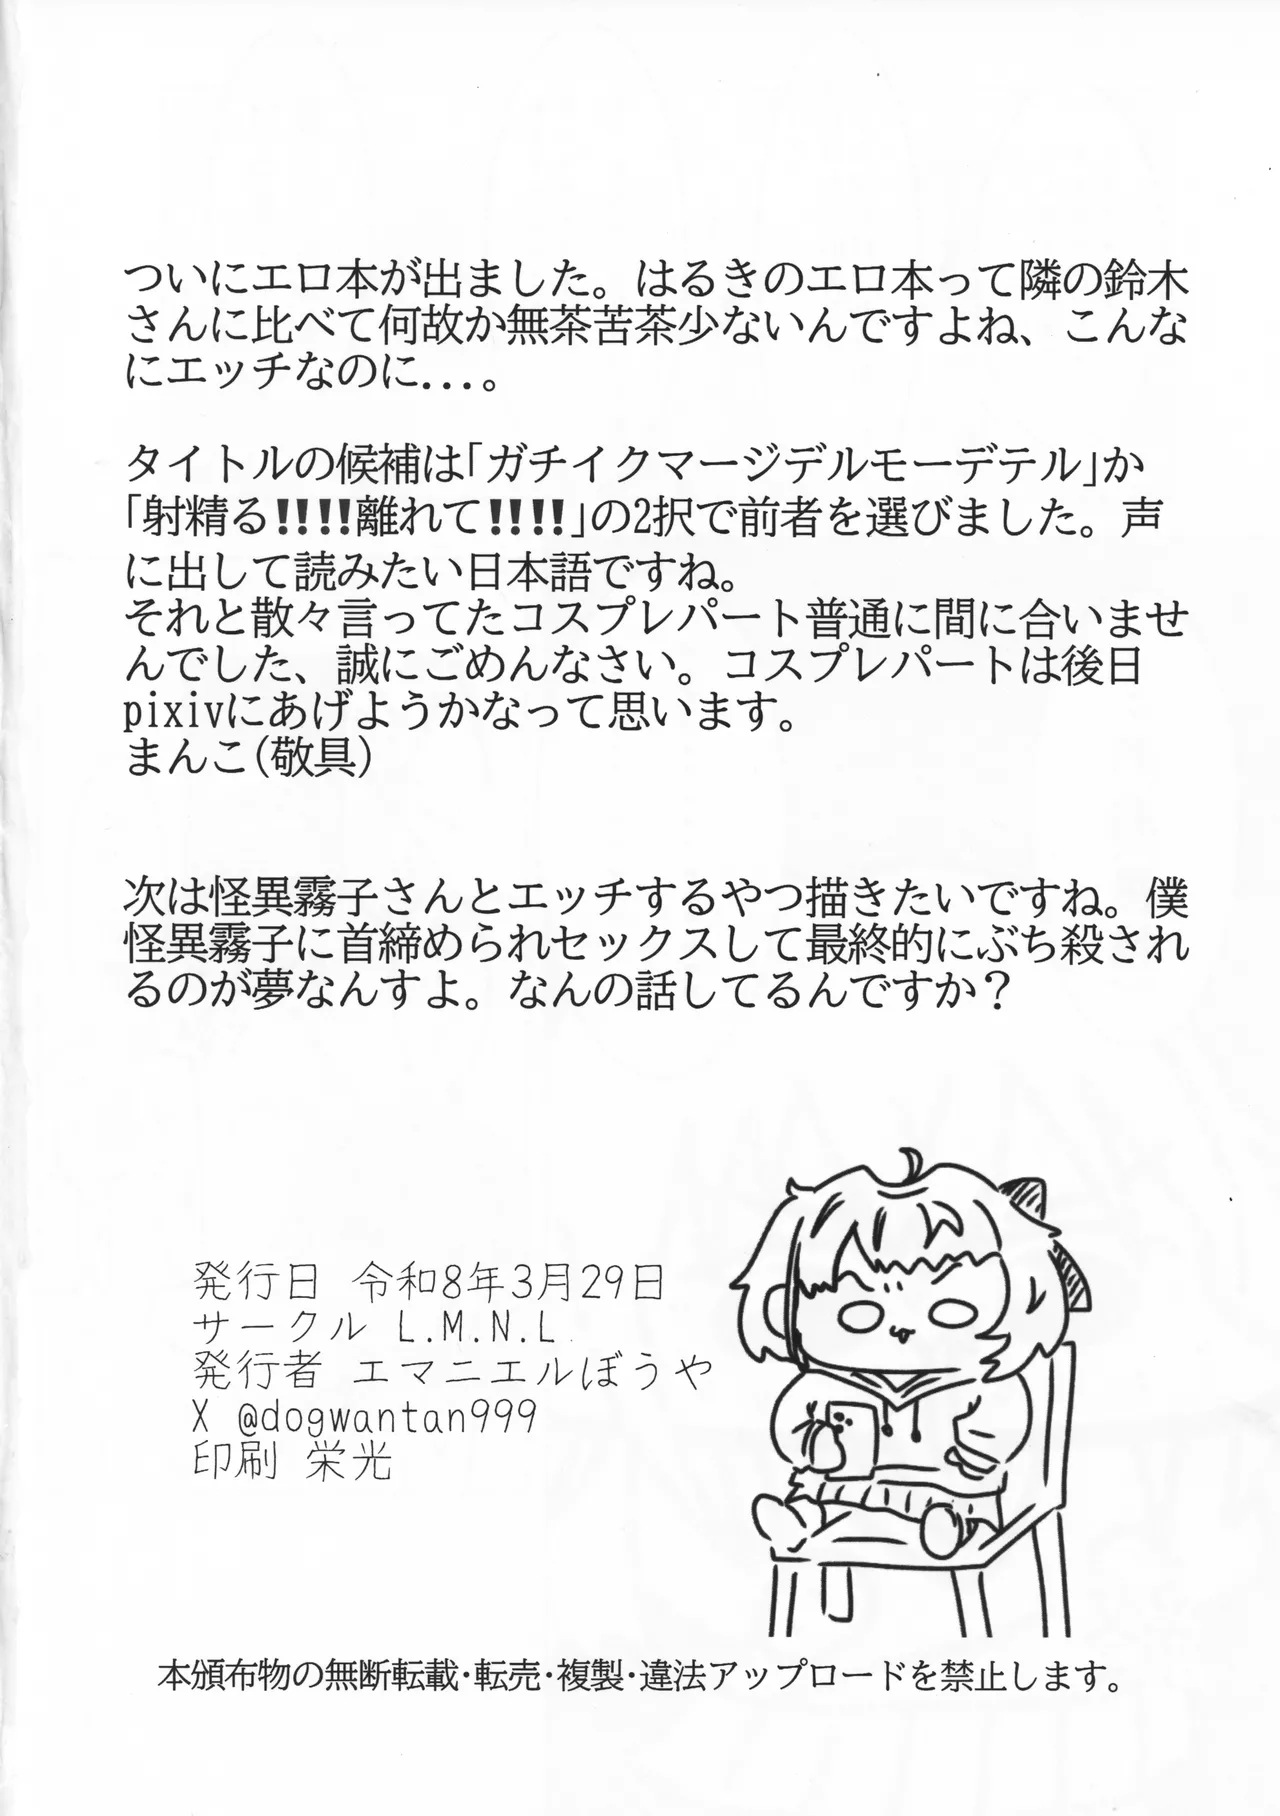 ついにエロ本が出ました。はるきのエロ本って隣の鈴木
さんに比べて何故か無茶苦茶少ないんですよね、こんな
にエッチなのに...。
タイトルの候補は「ガチイクマージデルモーデテル」か
「射精る!!!!離れて!!!!」の2択で前者を選びました。声
に出して読みたい日本語ですね。
それと散々言ってたコスプレパート普通に間に合いませ
んでした、誠にごめんなさい。コスプレパートは後日
pixivにあげようかなって思います。
まんこ(敬具)
次は怪異霧子さんとエッチするやつ描きたいですね。僕
怪異霧子に首締められセックスして最終的にぶち殺され
るのが夢なんすよ。なんの話してるんですか？
発行日 令和8年3月29日
サークル L.M.N.L
発行者 エマニエルぼうや
X @dogwantan999
印刷 栄光
本頒布物の無断転載・転売・複製・違法アップロードを禁止します。